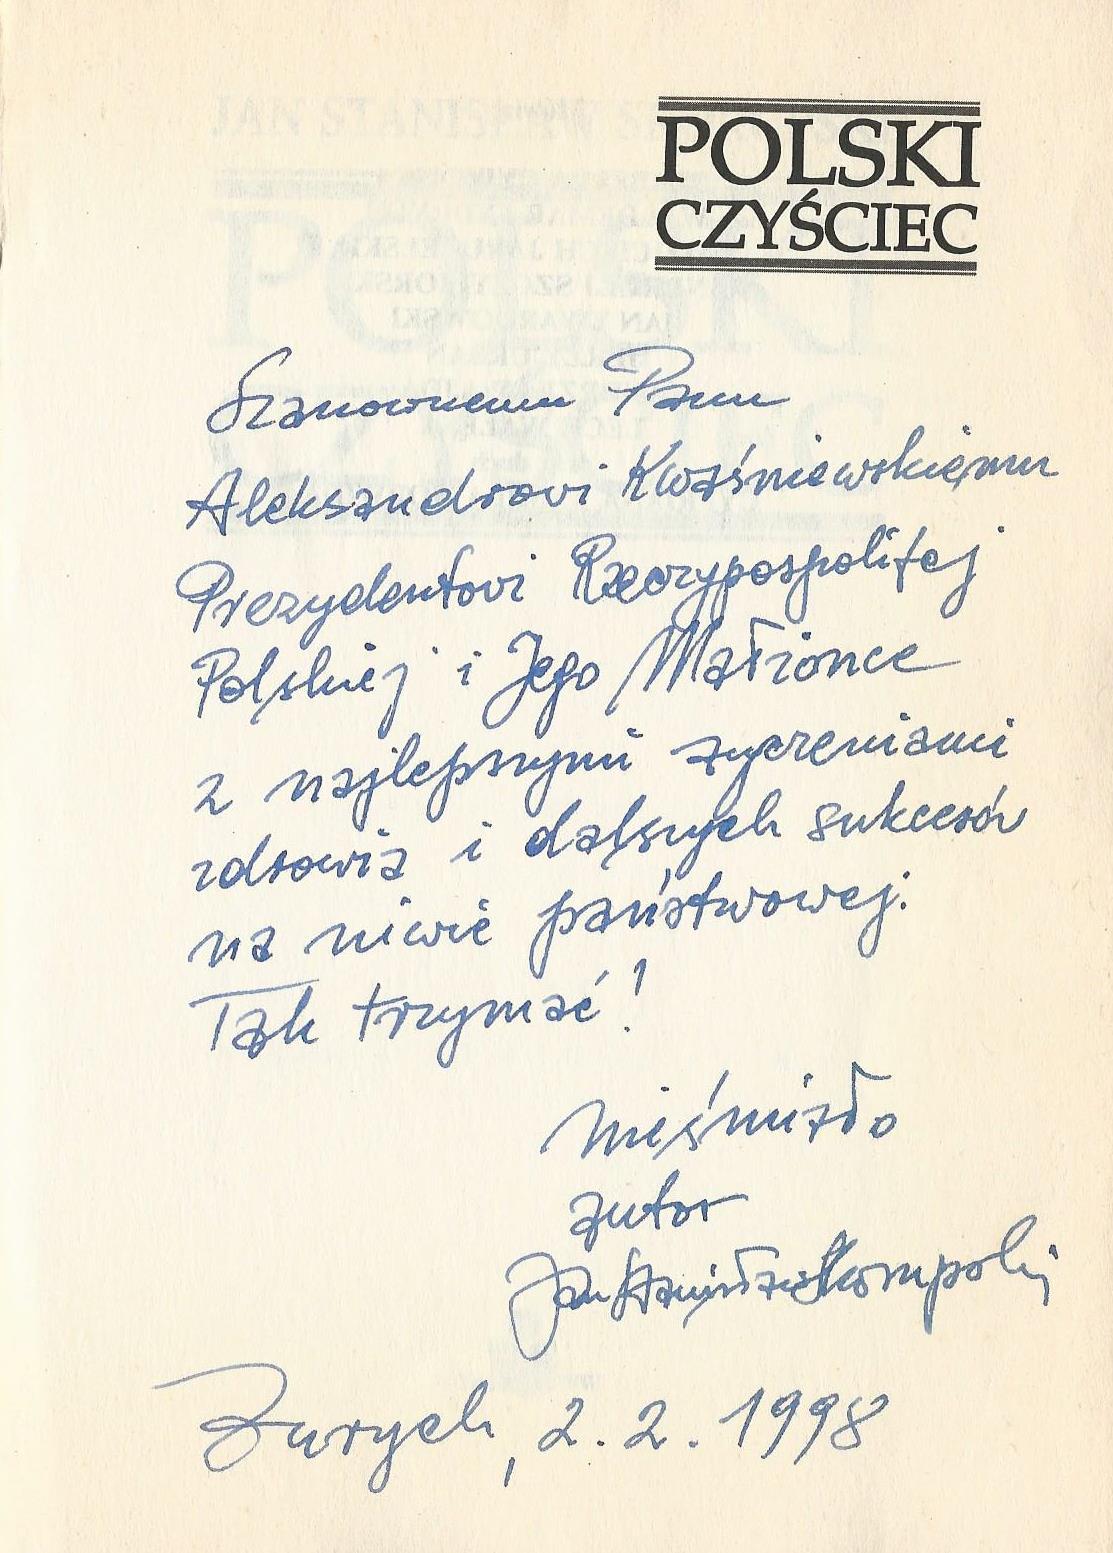 POLSKI
CZYŚCIEC
Szanownemu Panu
Aleksandrowi Kwaśniewskiemu
Prezydentowi Rzeczypospolitej
Polskiej i Jego Małżonce
z najlepszymi życzeniami
zdrowia i dalszych sukcesów
na niwie państwowej.
Tak trzymać!
nieśmiało
autor
Jan Stanisław Skorupski
Zurych, 2.2.1998